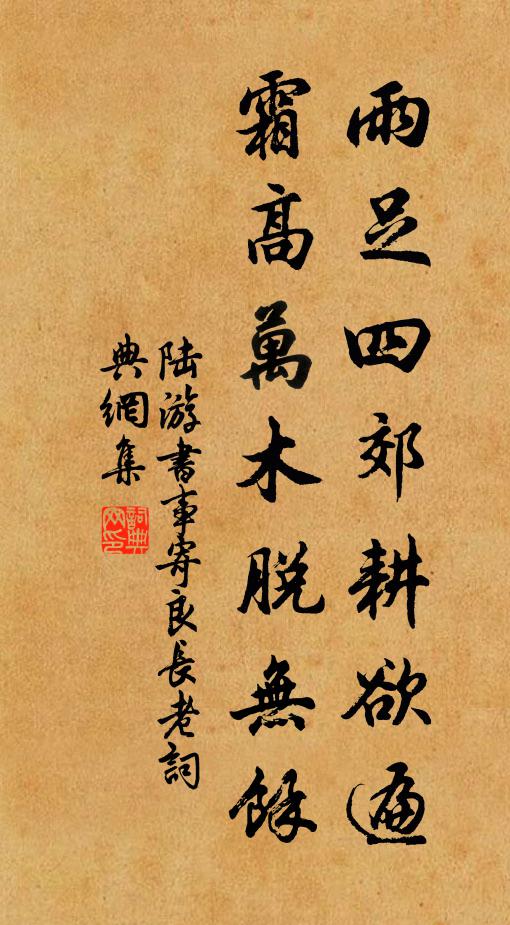 雨足四郊耕欲遍
霜高萬木脫無餘
陆游書事寄良長老詞
典網集
詞典
网印